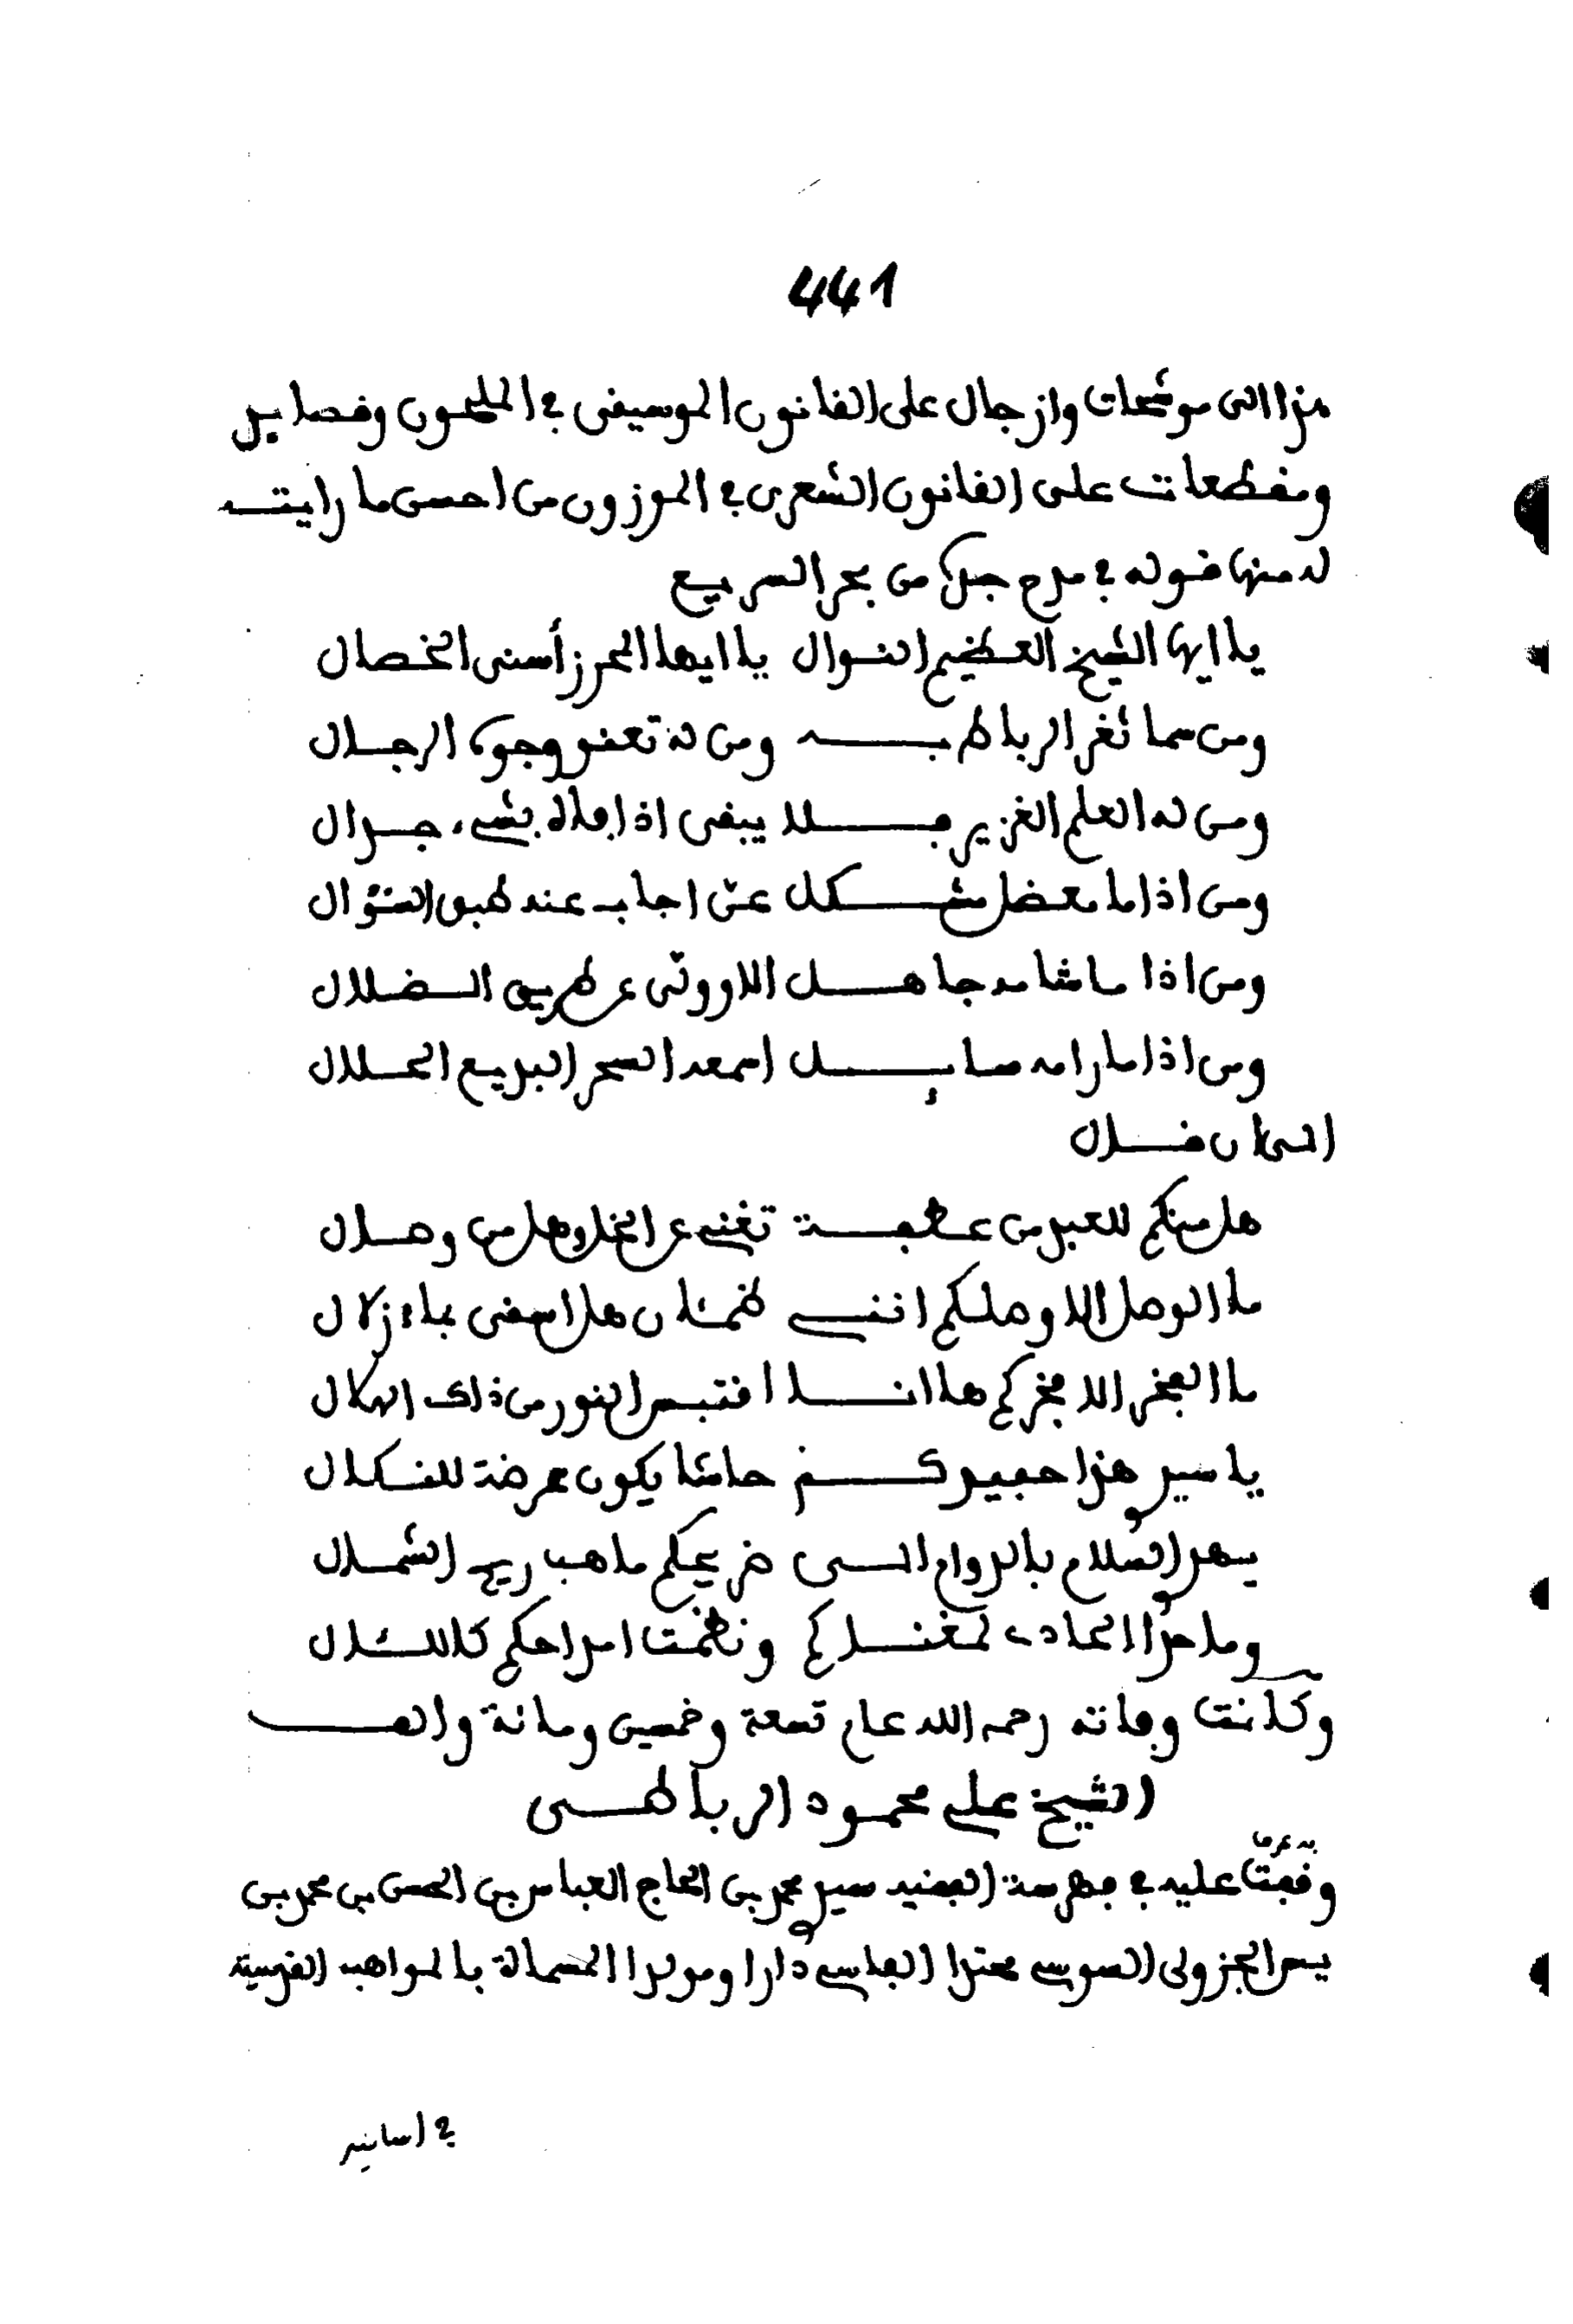 441
هذا الى موشحات وازجال على القانون الموسيقى في الملحون وقصايد
ومقطعات على القانون الشعرى في الموزون من احسن ما رايتـه
له منها قوله في مدح جدك من بحر السريع
يا ايها الشيخ العظيم النوال يا ايها المحرز أسنى الخصال
ومن سما ثغر الرباط بـه ومن له تعنو وجوه الرجال
ومن له العلم الغزير فـلا يبقى اذا افاد بشيء جدال
ومن اذا ما معضل مشكل عنّ اجاب عند طبق السؤال
ومن اذا ما شامه جاهل الا وولّى عن طريق الضلال
ومن اذا ما رامه سايل اسمعه السحر البديع الحلال
الى ان قال
هل منكم للعبد من عطفة تغني عن الخل وهل من وصال
ما الوصل الا وصلكم انني ظمئان هل اسقى بماء زلال
ما الفخر الا فخركم ها انا اقتبس النور من ذاك الهلال
يا سيدي هذا حفيدكم حاشا يكون عرضة للنكال
يهدي السلام بالدوام الى ضريحكم ما هب ريح الشمال
وما حدا الحادي لمغناكم ونظمت امداحكم كاللئال
وكانت وفاته رحمه الله عام تسعة وخمسين ومائة والف
الشيخ علي محمود الرباطى
وقفت عليه في فهرسة الفقيه سيدي محمد بن الحاج العباس بن الحسن بن محمد بن
يسر الجزولى السوسي محتدا الفاسي دارا ومولدا المسماة بالمواهب القدسية
في اسانيد